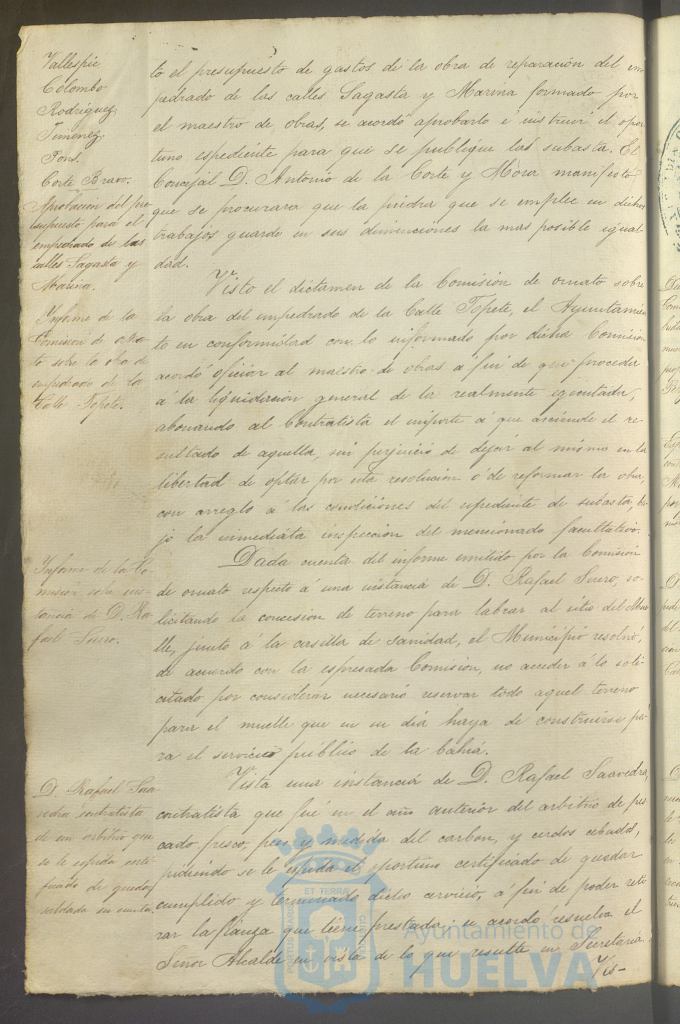 Vallespin
Colombo
Rodriguez
Jimenez
Pons.
Corte Bravo.
Aprobacion del pre
supuesto para el
empedrado de las
calles Sagasta y
Marina.
Informe de la
Comision de orna
to sobre la obra de
empedrado de la
Calle Topete.
Informe de la Co
mision sobre ins
tancia de D. Ra
fael Suero.
D. Rafael Saa
vedra contratista
de un arbitrio que
se le espida certi
ficado de quedar
solidada su cuenta.
to el presupuesto de gastos de la obra de reparacion del em
pedrado de las calles Sagasta y Marina formado por
el maestro de obras, se acordó aprobarlo é instruir el opor
tuno espediente para que se publique las subasta. El
Concejal D. Antonio de la Corte y Mora manifestó
que se procurara que la piedra que se emplee en dichos
trabajos guarde en sus dimenciones la mas posible igual
dad.
Visto el dictamen de la Comision de ornato sobre
la obra del empedrado de la Calle Topete, el Ayuntamien
to en conformidad con lo informado por dicha Comision
acordó oficiar al maestro de obras á fin de que proceda
á la liquidacion general de la realmente ejecutada,
abonando al Contratista el importe á que asciende el re
sultado de aquella, sin perjuicio de dejar al mismo en la
libertad de optar por esta resolucion ó de reformar la obra,
con arreglo á las condiciones del espediente de subasta, ba
jo la inmediata inspeccion del mencionado facultativo.
Dada cuenta del informe emitido por la Comision
de ornato respecto á una instancia de D. Rafael Suero, so
licitando la concesion de terreno para labrar al sitio del Mue
lle, junto á la casilla de sanidad, el Municipio resolvió,
de acuerdo con la espresada Comision, no acceder á lo soli
citado por considerar necesario reservar todo aquel terreno
para el muelle que en su dia haya de construirse pa
ra el servicio público de la bahia.
Vista una instancia de D. Rafael Saavedra,
contratista que fué en el año anterior del arbitrio de pes
cado fresco, peso y medida del carbon, y cerdos cebados,
pidiendo se le espida el oportuno certificado de quedar
cumplido y terminado dicho servicio, á fin de poder reti
rar la fianza que tiene prestada: se acordó resuelva el
Señor Alcalde en vista de lo que resulte en Secretaria.
Vis-
Ayuntamiento de
HUELVA